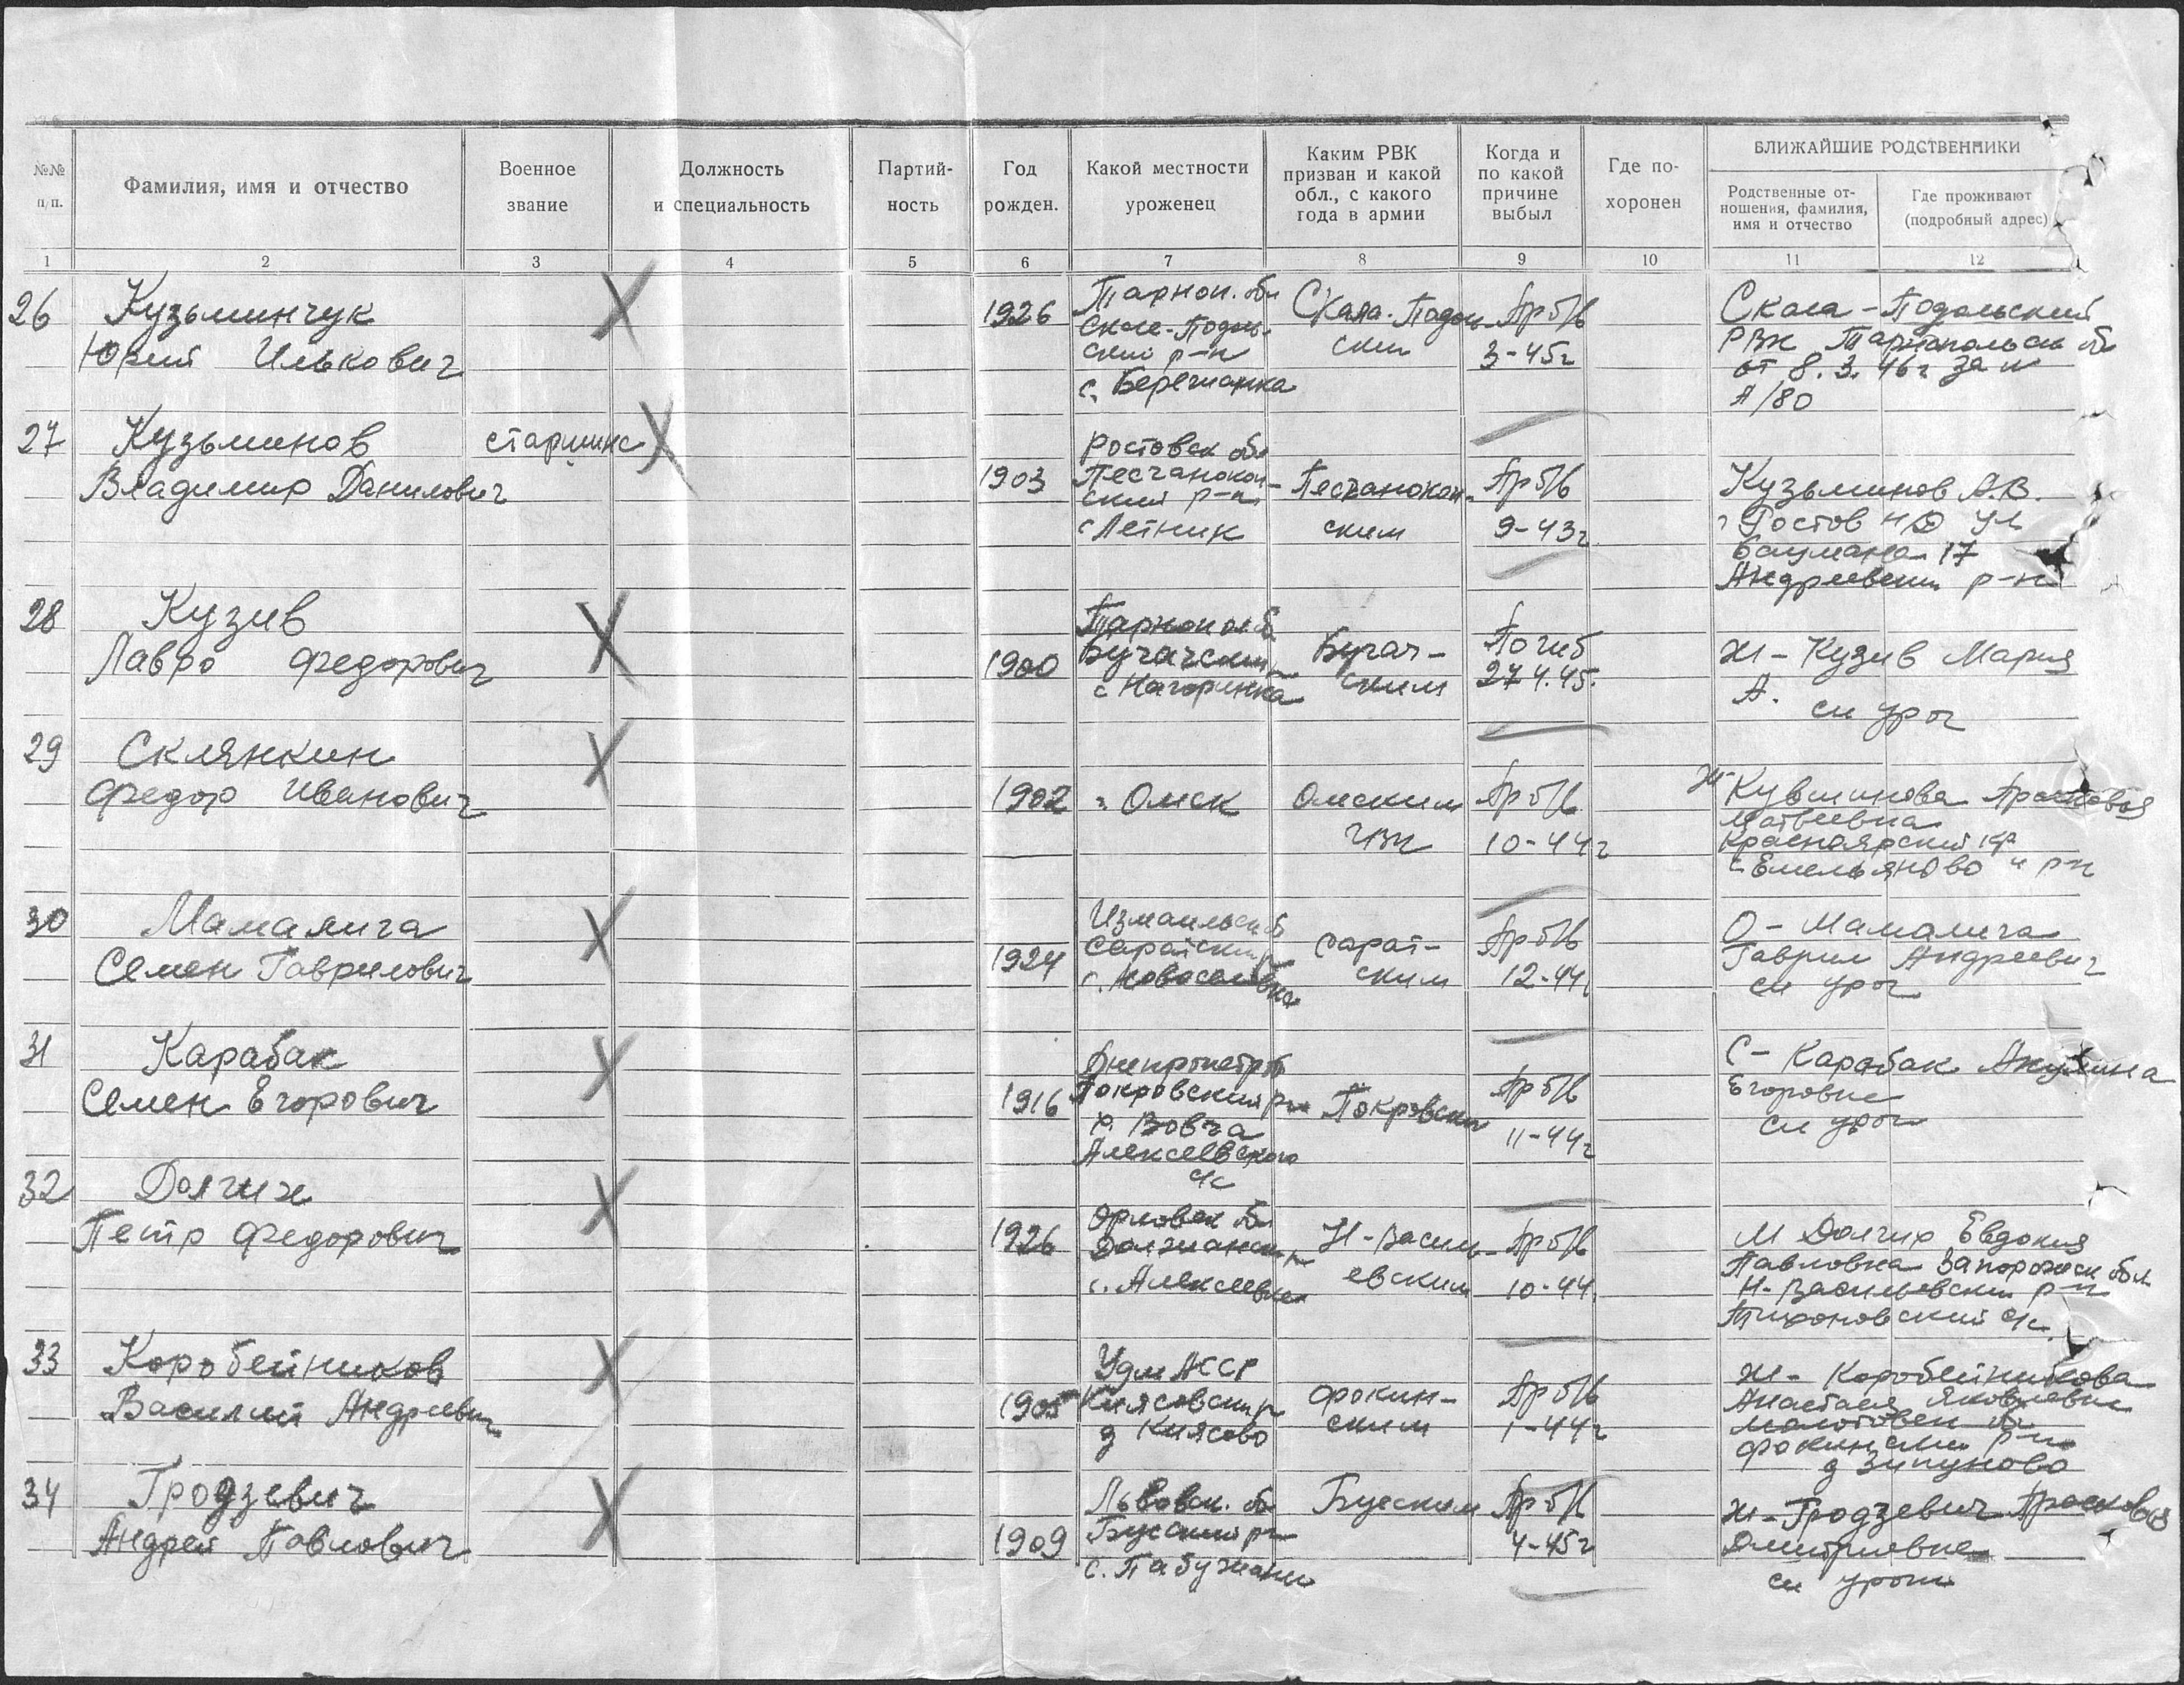 №№ п/п.
Фамилия, имя и отчество
Военное звание
Должность и специальность
Партийность
Год рожден.
Какой местности уроженец
Каким РВК призван и какой обл., с какого года в армии
Когда и по какой причине выбыл
Где похоронен
БЛИЖАЙШИЕ РОДСТВЕННИКИ
Родственные отношения, фамилия, имя и отчество
Где проживают (подробный адрес)
1 2 3 4 5 6 7 8 9 10 11 12
26
Кузьминчук
Юрий Илькович
1926
Тарноп. обл
Скала-Подоль-
ский р-н
с. Бережанка
Скала-Подоль-
ским
Пр б/в
3-45г
Скала-Подольский
РВК Тарнопольск об
от 8.3.46г за н
А/80
27
Кузьминов
Владимир Данилович
старшина
1903
Ростовск обл
Песчанокоп-
ский р-н
с Летник
Песчанокоп-
ским
Пр б/в
9-43г
Кузьминов А.В.
г Ростов н/Д ул
Баумана 17
Андреевский р-н
28
Кузив
Лавро Федорович
1900
Тарнопол об
Бучачский
с Нагорянка
Бучач-
ским
Погиб
27.4.45.
ж-Кузив Мария
А.
см урож
29
Склянкин
Федор Иванович
1902
г Омск
Омским
ГВК
Пр б/в
10-44г
ж-Кувшинова Прасковья
Матвеевна
Красноярский кр
с Емельяново " р-н
30
Мамалига
Семен Гаврилович
1924
Измаильск об
Саратский р
с. Новоселовка
Сарат-
ским
Пр б/в
12-44г
О-Мамалига
Гаврил Андреевич
см урож
31
Карабак
Семен Егорович
1916
Днепропетр об
Покровский р-н
р. Вовча
Алексеевского
с/с
Покровским
Пр б/в
11-44г
С-Карабак Акулина
Егоровна
см урож
32
Долгих
Петр Федорович
1926
Орловск об
Должанский р
с. Алексеевка
Н-Василь-
евским
Пр б/в
10-44.
М Долгих Евдокия
Павловна Запорожск обл
Н-Васильевский р-н
Тихоновский с/с.
33
Коробейников
Василий Андреевич
1905
Удм АССР
Киясовский р
д Киясово
Фокин-
ским
Пр б/в
1-44г
ж-Коробейникова
Анастасия Яковлевна
Молотовск об
Фокинский р-н
д Зипуново
34
Гродзевич
Андрей Павлович
1909
Львовск. об
Бусский р-н
с. Побужаны
Бусским
Пр б/в
4-45г
ж-Гродзевич Прасковья
Дмитриевна
см урож